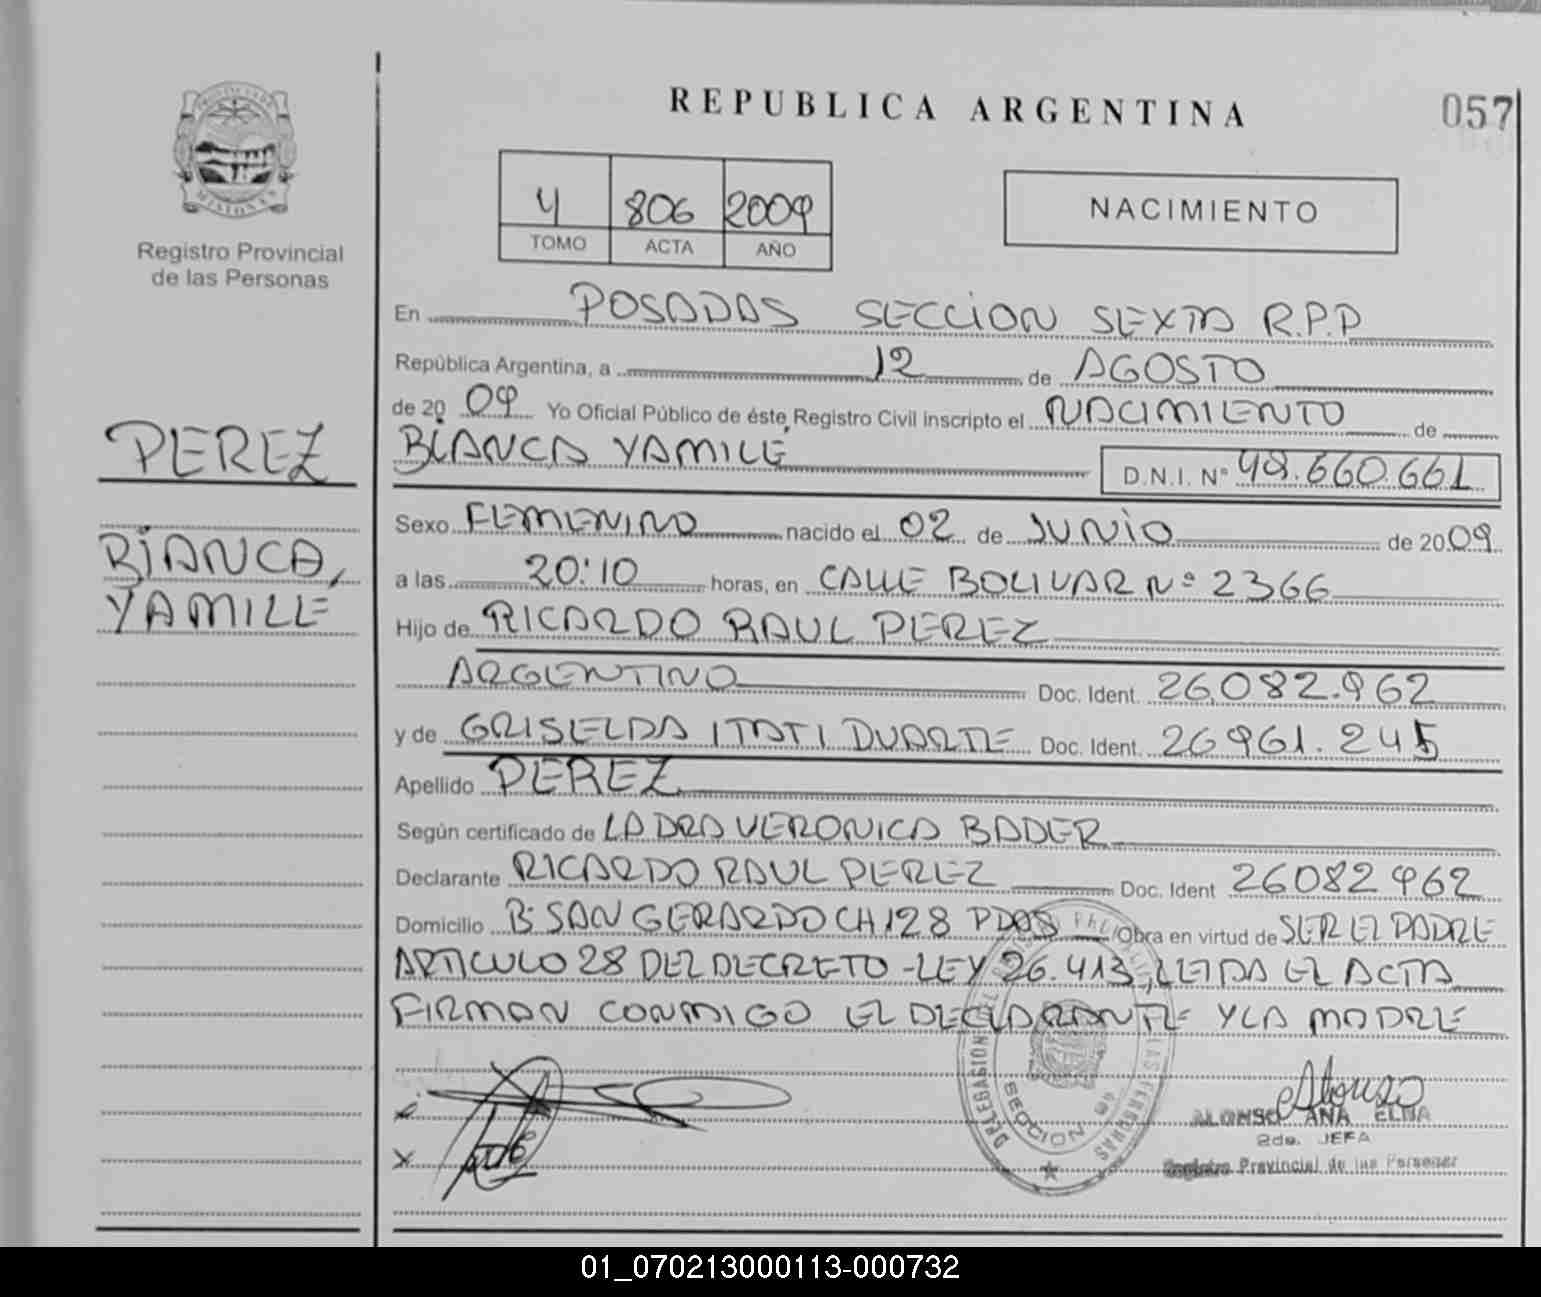 REPUBLICA ARGENTINA
057
PROVINCIA DE
MISIONES
Registro Provincial
de las Personas
4 806 2009
TOMO ACTA AÑO
NACIMIENTO
En POSADAS SECCION SEXTA R.P.P
República Argentina, a 12 de AGOSTO
de 2009 Yo Oficial Público de éste Registro Civil inscripto el NACIMIENTO de
BIANCA YAMILÉ D.N.I. Nº 49.660.661
PEREZ
BIANCA,
YAMILE
Sexo FEMENINO nacido el 02 de JUNIO de 2009
a las 20:10 horas, en CALLE BOLIVAR Nº 2366
Hijo de RICARDO RAUL PEREZ
ARGENTINO Doc. Ident. 26.082.962
y de GRISELDA ITATI DUARTE Doc. Ident. 26961.245
Apellido PEREZ
Según certificado de LA DRA VERONICA BADER
Declarante RICARDO RAUL PEREZ Doc. Ident 26082962
Domicilio Bº SAN GERARDO CH 128 PDAS Obra en virtud de SER EL PADRE
ARTICULO 28 DEL DECRETO-LEY 26.413, LEIDA EL ACTA
FIRMAN CONMIGO EL DECLARANTE Y LA MADRE
DELEGACION DEL
LAS PERSONAS
SECCION 6ª
Alonso
ALONSO ANA ELBA
2da. JEFA
Registro Provincial de las Personas
01_070213000113-000732